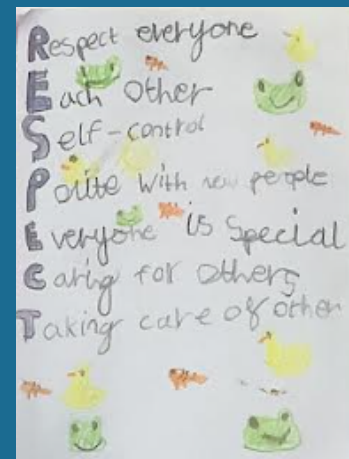 Respect everyone
Each Other
Self-control
Polite with new people
Everyone is Special
Caring for others
Taking care of other